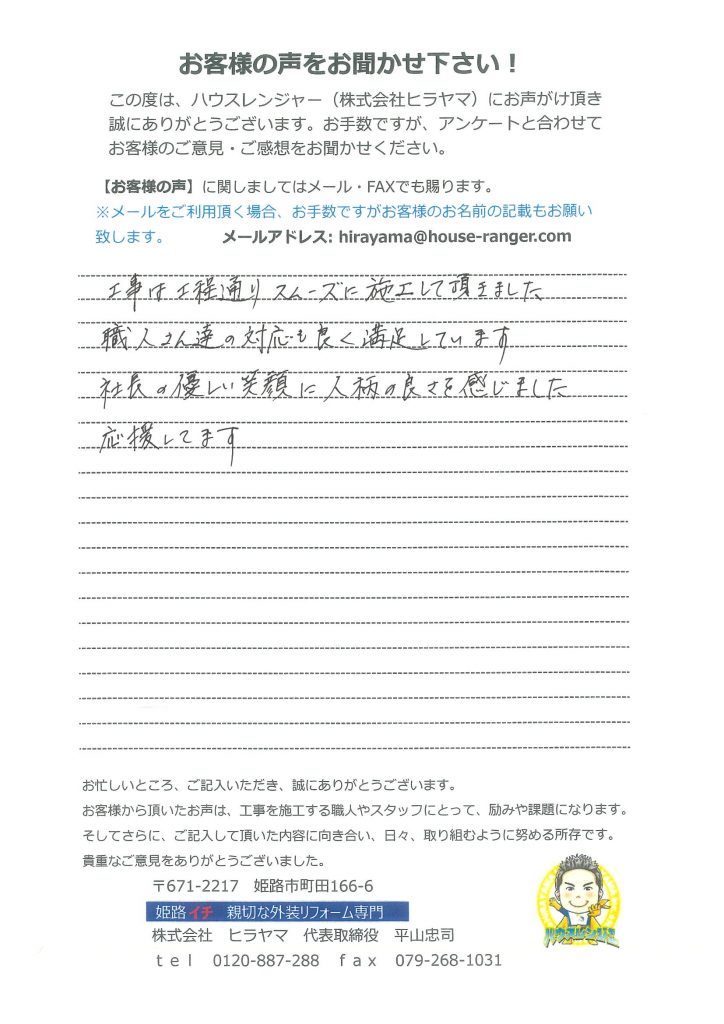 お客様の声をお聞かせ下さい！
この度は、ハウスレンジャー（株式会社ヒラヤマ）にお声がけ頂き
誠にありがとうございます。お手数ですが、アンケートと合わせて
お客様のご意見・ご感想をお聞かせください。
【お客様の声】に関しましてはメール・FAXでも賜ります。
※メールをご利用頂く場合、お手数ですがお客様のお名前の記載もお願い
致します。 メールアドレス: hirayama@house-ranger.com
工事は工程通りスムーズに施工して頂きました
職人さん達の対応も良く満足しています
社長の優しい笑顔に人柄の良さを感じました
応援してます
お忙しいところ、ご記入いただき、誠にありがとうございます。
お客様から頂いたお声は、工事を施工する職人やスタッフにとって、励みや課題になります。
そしてさらに、ご記入して頂いた内容に向き合い、日々、取り組むように努める所存です。
貴重なご意見をありがとうございました。
〒671-2217 姫路市町田166-6
姫路イチ 親切な外装リフォーム専門
株式会社 ヒラヤマ 代表取締役 平山忠司
ｔｅｌ 0120-887-288 ｆａｘ 079-268-1031
ハウスレンジャー